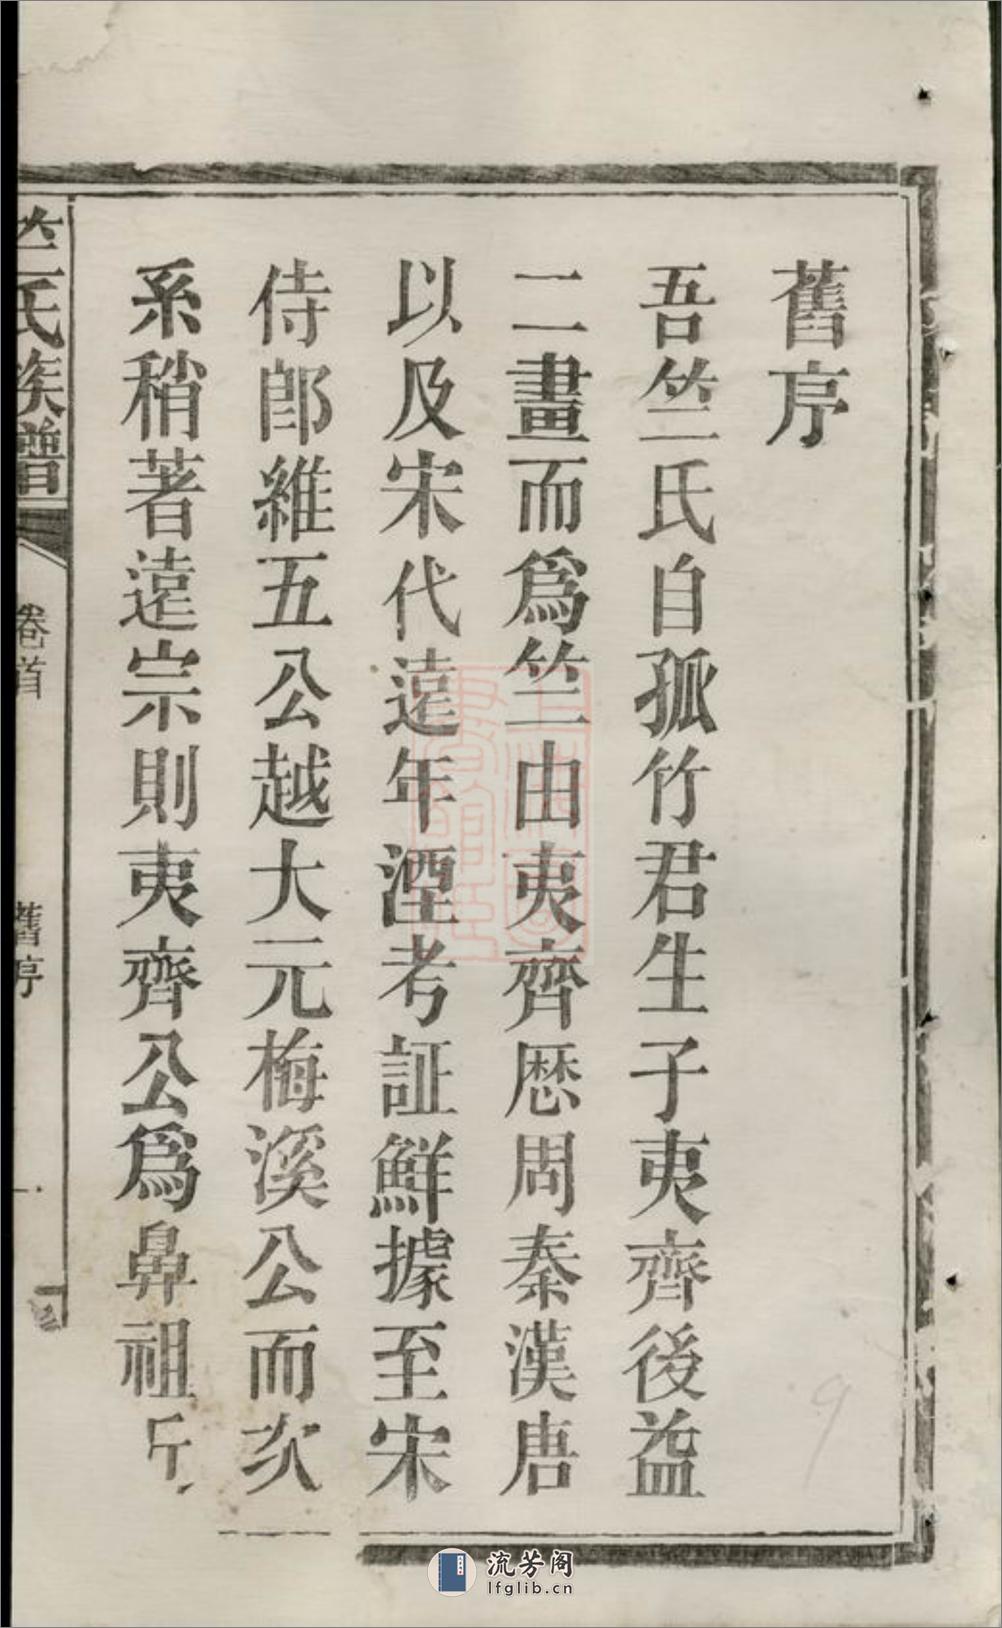 舊序
吾竺氏自孤竹君生子夷齊後益
二畫而爲竺由夷齊歷周秦漢唐
以及宋代遠年湮考証鮮據至宋
侍郎維五公越大元梅溪公而次
系稍著遠宗則夷齊公爲鼻祖
竺氏族譜
卷首
舊序
9
流芳阁
lfglib.cn